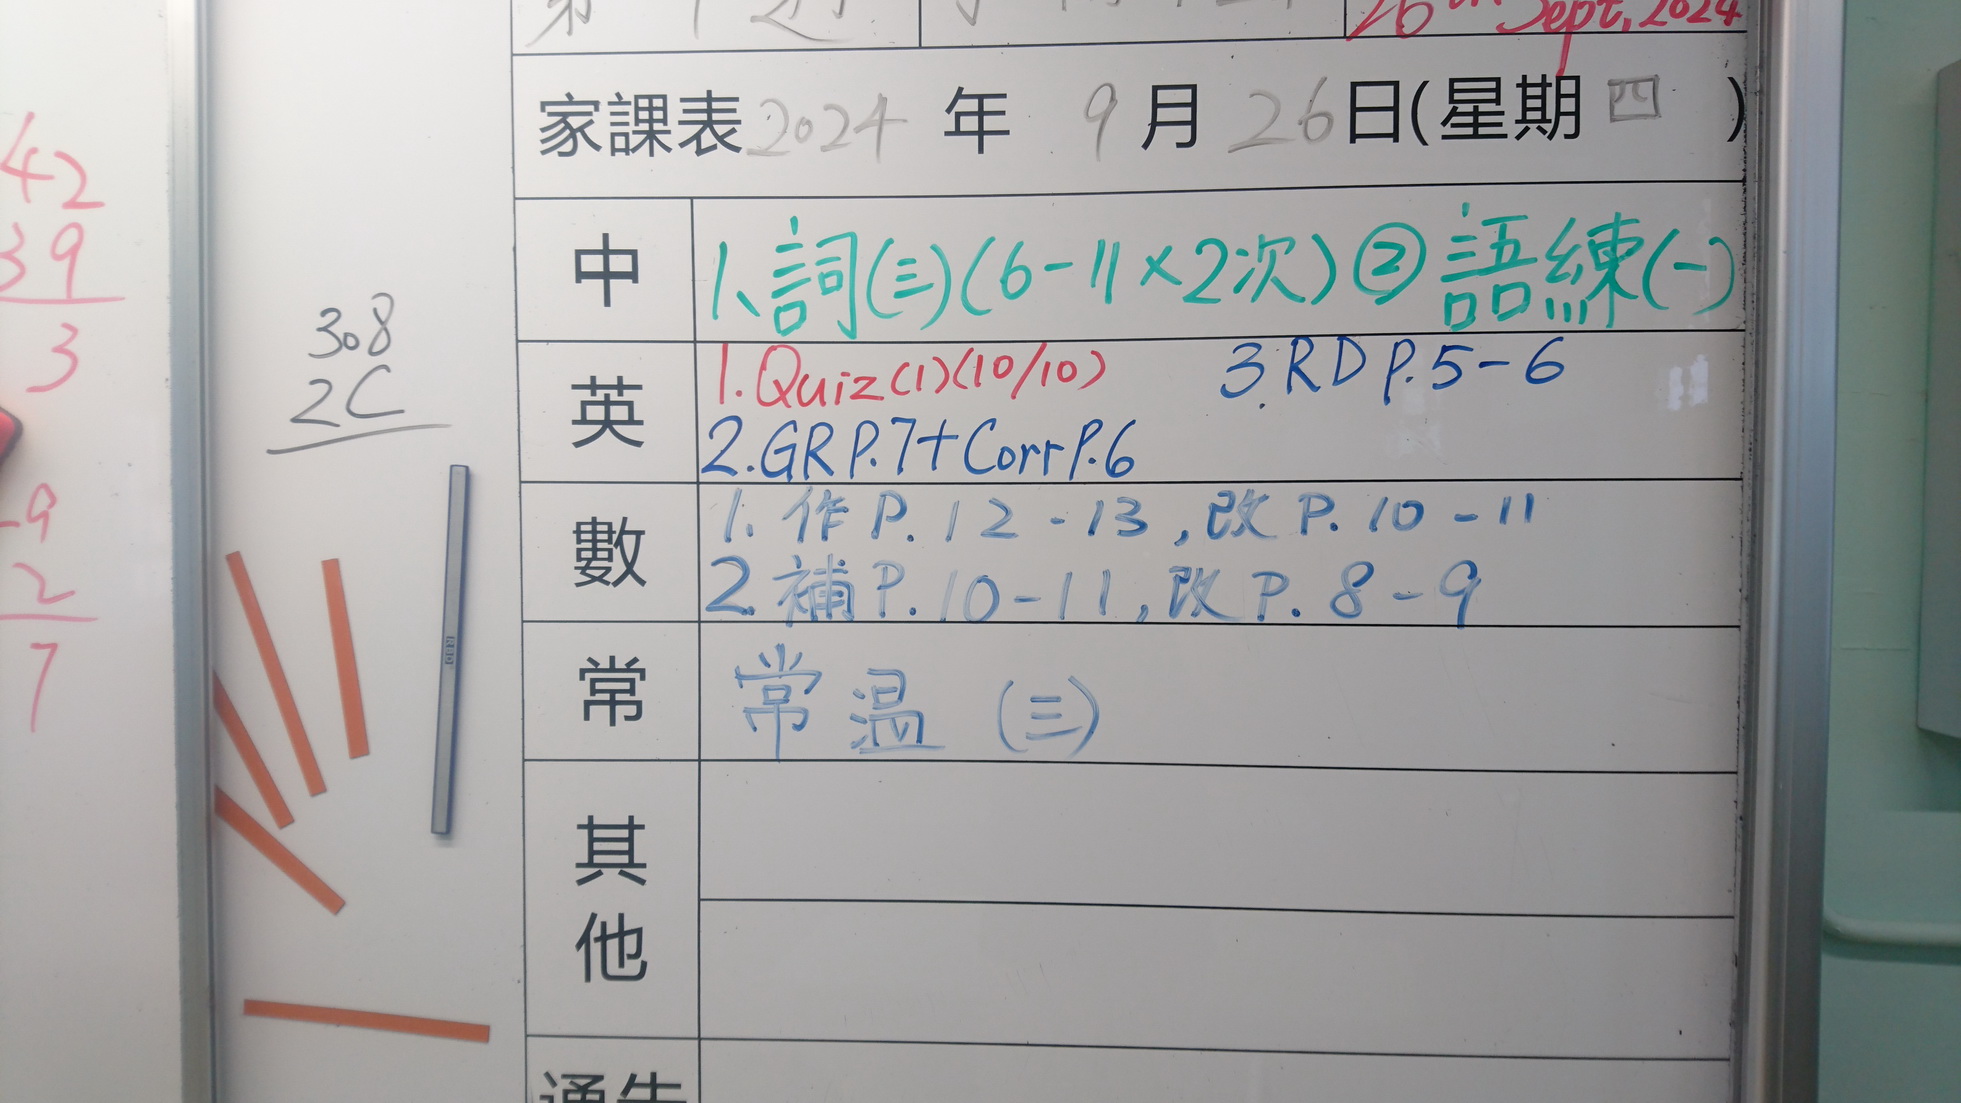 26th Sept, 2024
家課表 2024 年 9 月 26 日(星期 四 )
中 1、詞(三)(6-11×2次) ② 語練(一)
英 1. Quiz(1)(10/10) 3. RD P.5-6
2. GR P.7+Corr P.6
數 1. 作 P. 12-13, 改 P. 10-11
2. 補 P. 10-11, 改 P. 8-9
常 常温 (三)
其他
通告
308
2C
42
39
3
-9
2
7